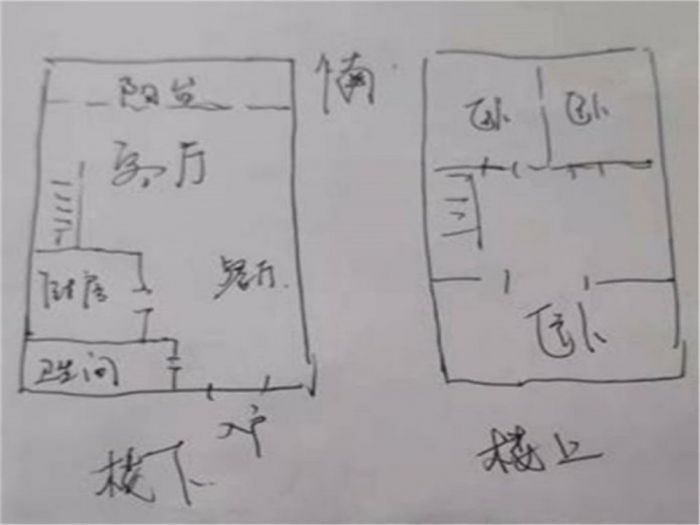 阳台
客厅
厨房
餐厅
卫生间
入户
楼下
南
卧
卧
卧
楼上